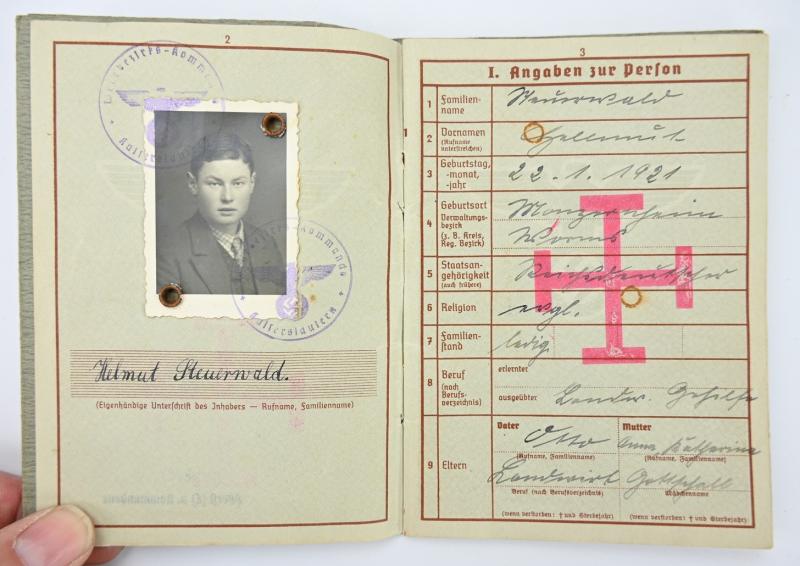 2
Wehrbezirks-Kommando
Kaiserslautern
Wehrbezirks-Kommando
Kaiserslautern
Helmut Steuerwald.
(Eigenhändige Unterschrift des Inhabers — Rufname, Familienname)
3
I. Angaben zur Person
1 Familien-
name
Steuerwald
1
2 Vornamen
(Rufname
unterstreichen)
Hellmut
3 Geburtstag,
-monat,
-jahr
22.1.1921
4 Geburtsort
Verwaltungs-
bezirk
(z. B. Kreis,
Reg. Bezirk)
Monzernheim
Worms
5 Staatsan-
gehörigkeit
(auch frühere)
Reichsdeutscher
6 Religion
evgl.
7 Familien-
stand
ledig
8 Beruf
(nach
Berufs-
verzeichnis)
erlernter
ausgeübter Landw. Gehilfe
9 Eltern
Vater
Otto
(Rufname, Familienname)
Landwirt
Beruf (nach Berufsverzeichnis)
(wenn verstorben: † und Sterbejahr)
Mutter
Anna Katharina
(Rufname, Familienname)
Gottschall
Mädchenname
(wenn verstorben: † und Sterbejahr)